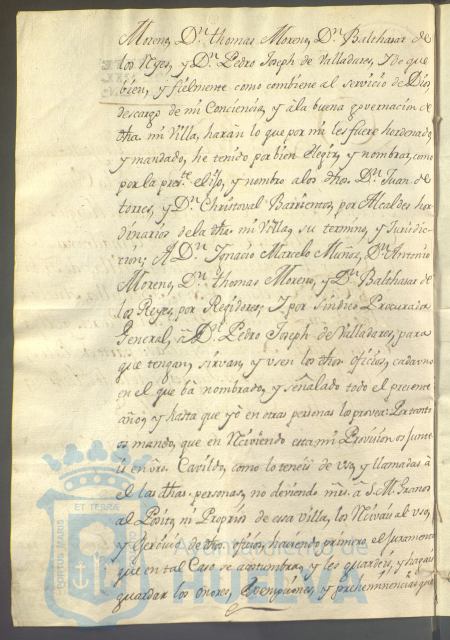 Moreno, Dn. thomas Moreno, Dn. Balthasar de
los Reyes, y Dn. Pedro Joseph de Valladares, Y de que
bien, y fielmente como combiene al servicio de Dios,
descargo de mi Conciencia, y à la buena governacion de
dha. mi Villa, haràn lo que por mi les fuere hordenado,
y mandado, he tenido por bien elegir, y nombrar, como
por la preste. elijo, y nombro a los dhos. Dn. Juan de
torres, y Dn. Christoval Barrientos, por Alcaldes hor
dinarios de la dha. mi Villa, su termino, y Jurisdic
cion; A Dn. Ignacio Marcelo Muñoz, Dn. Antonio
Moreno, Dn. thomas Moreno, y Dn. Balthasar de
los Reyes, por Regidores; Y por sindico Procurador
General, à Dn. Pedro Joseph de Valladares, para
que tengan, sirvan, y usen los dhos oficios, cada uno
en el que bà nombrado, y señalado todo el presente
año, y hasta que yò en otras personas los provea: Por tanto
os mando, que en Reciviendo esta mi Provision os junte
is en vro. Cavildo, como lo teneis de uso, y llamadas à
èl las dhas. personas, no deviendo mrs. à S.M. Granos
al Posito, ni Proprios de essa villa, los Recivàis al uso,
y exercicio de dhos. oficios, haciendo primero el juramento
que en tal Caso se acostumbra, y les guardeis, y hagais
guardar los onores, exempciones, y prehemminencias que
ET TERRÆ
PORTUS MARIS
Ayuntamiento de
HUELVA